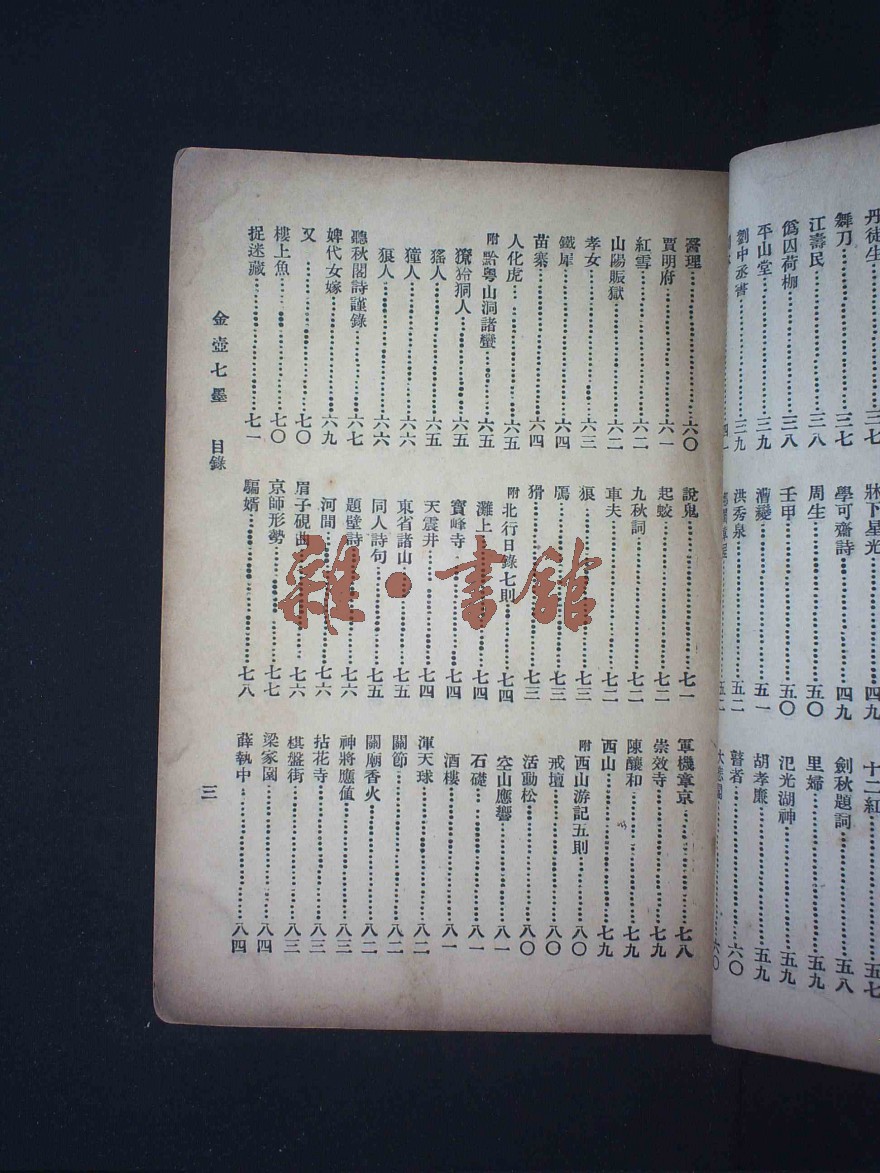 丹徒生……三七
舞刀……三七
江壽民……三八
僞囚荷枷……三八
平山堂……三九
劉中丞書……三九
牀下星光……四九
學可齋詩……四九
周生……五〇
壬甲……五〇
漕變……五一
洪秀泉……五二
十二紅……五七
劍秋題詞……五八
里婦……五九
氾光湖神……五九
胡孝廉……五九
瞽者……六〇
醫理……六〇
賈明府……六一
紅雪……六二
山陽賑獄……六二
孝女……六三
鐵犀……六四
苗寨……六四
人化虎……六五
附黔粵山洞諸蠻……六五
獠狑狪人……六五
猺人……六五
獞人……六六
狼人……六六
聽秋閣詩謹錄……六七
婢代女嫁……六九
又……七〇
樓上魚……七〇
捉迷藏……七一
說鬼……七一
起蛟……七二
九秋詞……七二
車夫……七二
狼……七三
鴈……七三
猾……七三
附北行日錄七則……七四
灘上……七四
寶峰寺……七四
天震井……七四
東省諸山……七五
同人詩句……七五
題壁詩……七六
河間……七六
眉子硯曲……七六
京師形勢……七七
騙婿……七八
軍機章京……七八
崇效寺……七九
陳釀和……七九
西山……七九
附西山游記五則……八〇
戒壇……八〇
活動松……八〇
空山應響……八一
石磴……八一
酒樓……八一
渾天球……八二
關節……八二
關廟香火……八二
神將應值……八三
拈花寺……八三
棋盤街……八三
梁家園……八四
薛執中……八四
金壺七墨 目錄 三
雜·書館